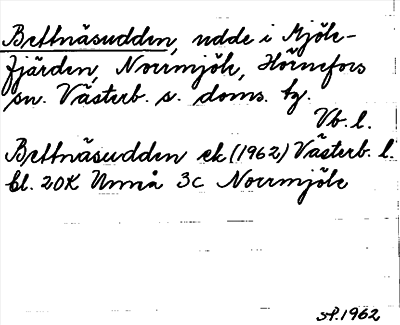 Bettnäsudden, udde i Mjöle-
fjärden, Norrmjöle, Hörnefors
sn. Västerb. s. doms. tg.
Vb. l.
Bettnäsudden ek (1962) Västerb. l.
bl. 20K Umeå 3c Norrmjöle
1962